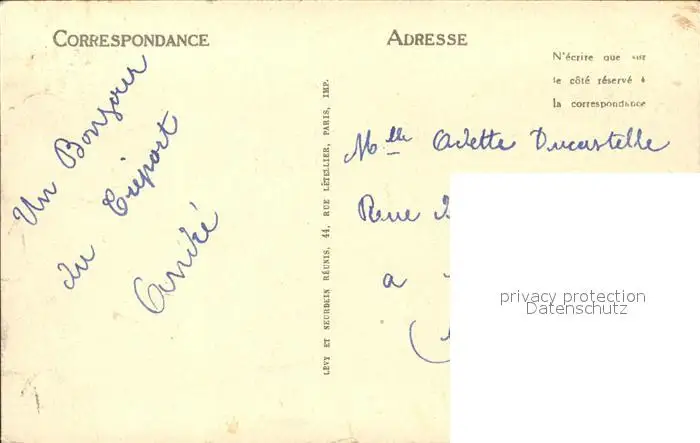 CORRESPONDANCE
ADRESSE
N'écrire que sur
le côté réservé à
la correspondance
Un Bonjour
du Tréport
LÉVY ET NEURDEIN RÉUNIS, 44, RUE LETELLIER, PARIS, IMP.
Mlle Odette Ducastelle
a
privacy protection
Datenschutz